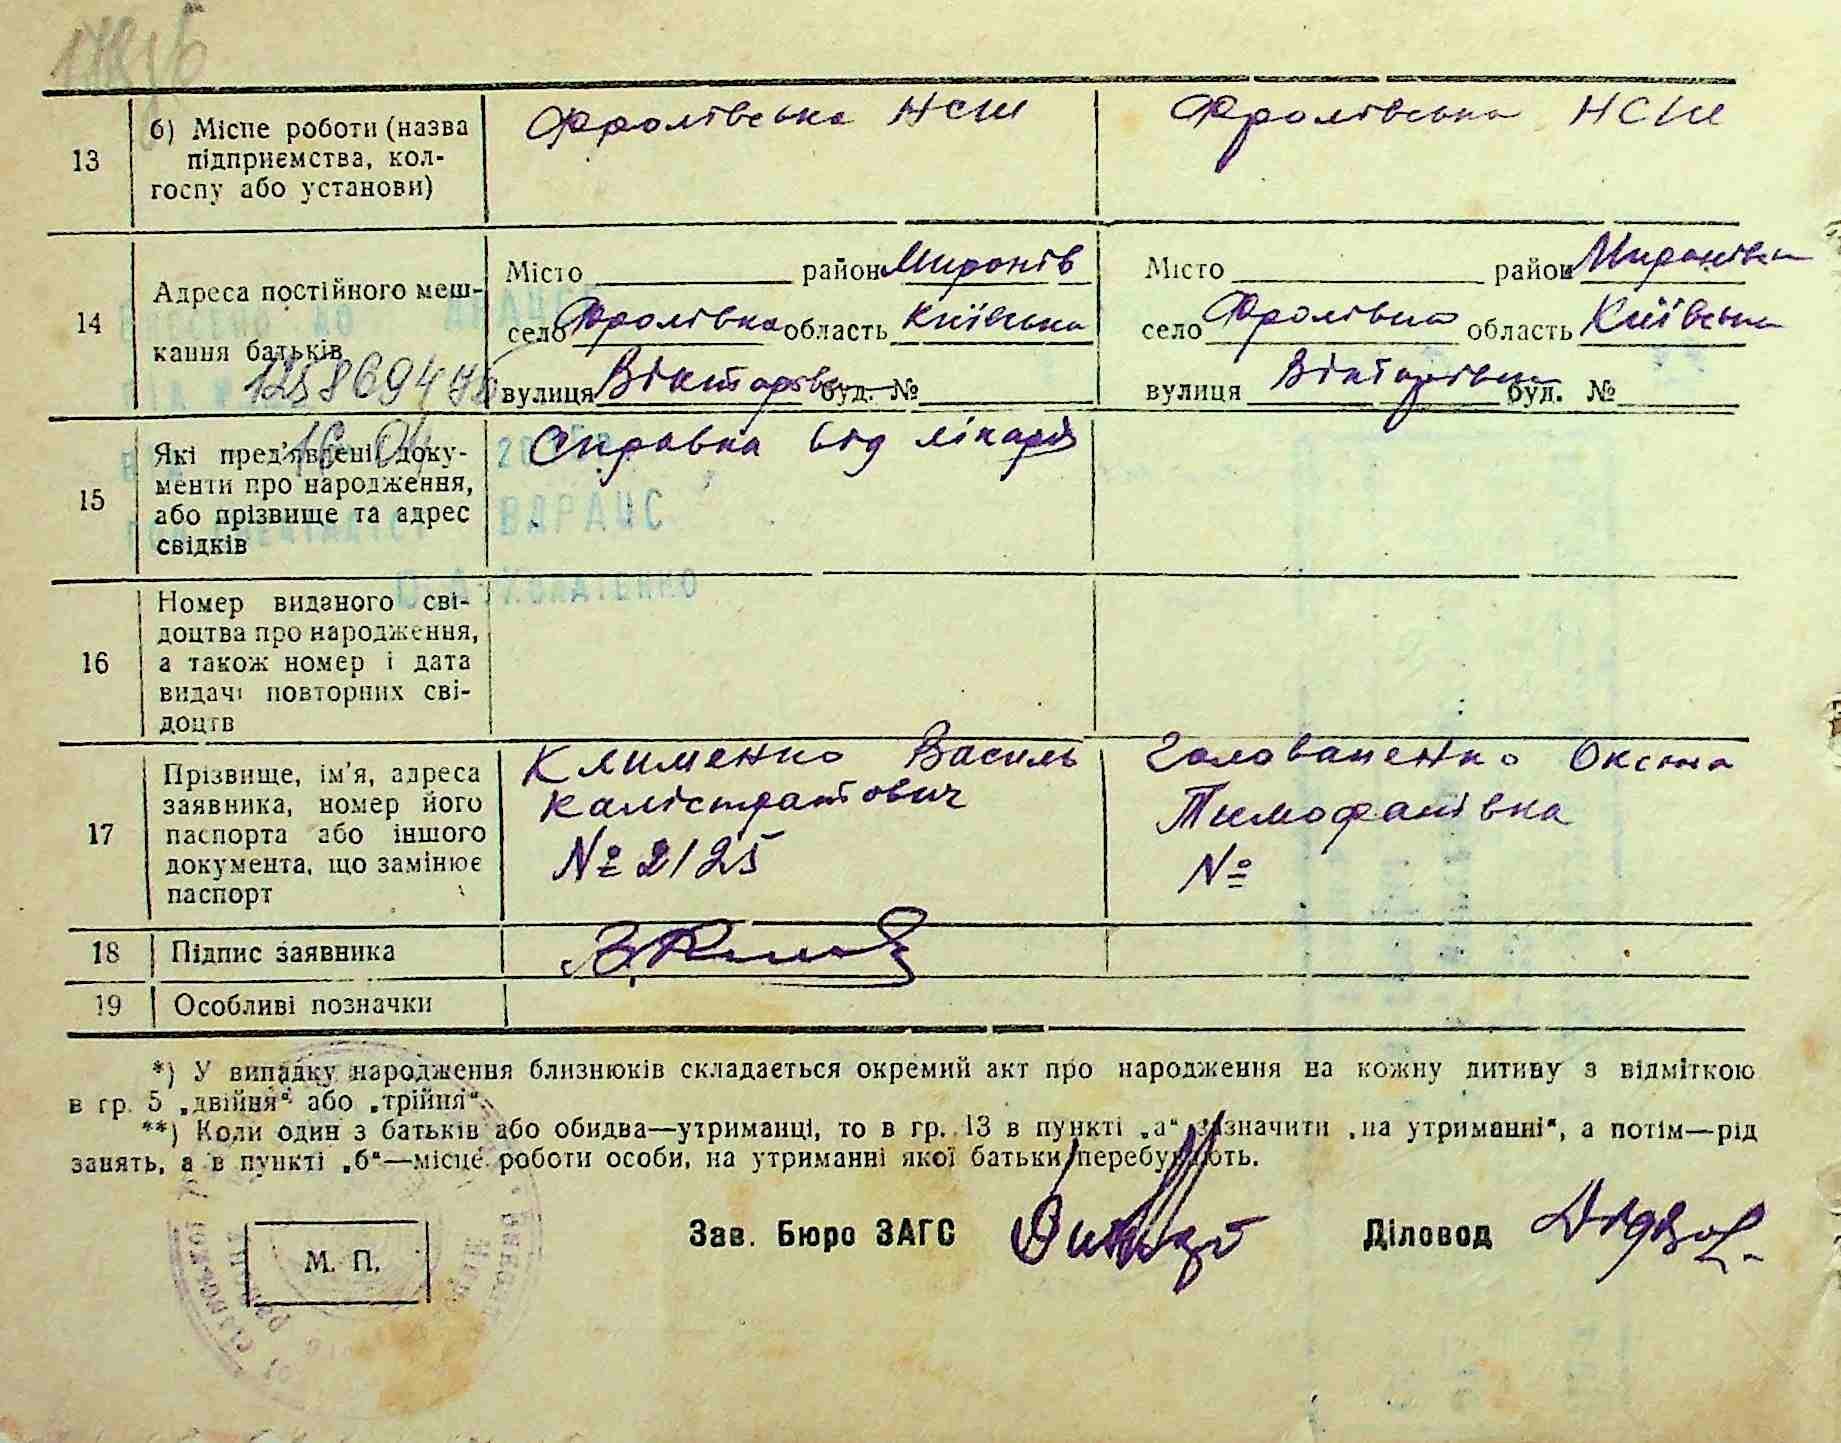 13
б) Місце роботи (назва
підприємства, кол-
госпу або установи)
Фролівська НСШ
Фролівська НСШ
14
Адреса постійного меш-
кання батьків
1258694
Місто район Миронів
село Фролівка область Київська
вулиця Вікторівка буд. №
Місто район Миронівка
село Фролівка область Київська
вулиця Вікторівка буд. №
15
Які пред'явлені доку-
менти про народження,
або прізвище та адрес
свідків
16 04
ВДРАЦС
Справка від лікаря
16
Номер виданого сві-
доцтва про народження,
а також номер і дата
видачі повторних сві-
доцтв
17
Прізвище, ім'я, адреса
заявника, номер його
паспорта або іншого
документа, що замінює
паспорт
Клименко Василь
Калістратович
№ 2125
Голованенко Оксана
Тимофаиівна
№
18
Підпис заявника
19
Особливі позначки
*) У випадку народження близнюків складається окремий акт про народження на кожну дитину з відміткою
в гр. 5 „двійня“ або „трійня“.
**) Коли один з батьків або обидва—утриманці, то в гр. 13 в пункті „а“ зазначити „на утриманні“, а потім—рід
занять, а в пункті „б“—місце роботи особи, на утриманні якої батьки перебувають.
М. П.
Зав. Бюро ЗАГС
Діловод